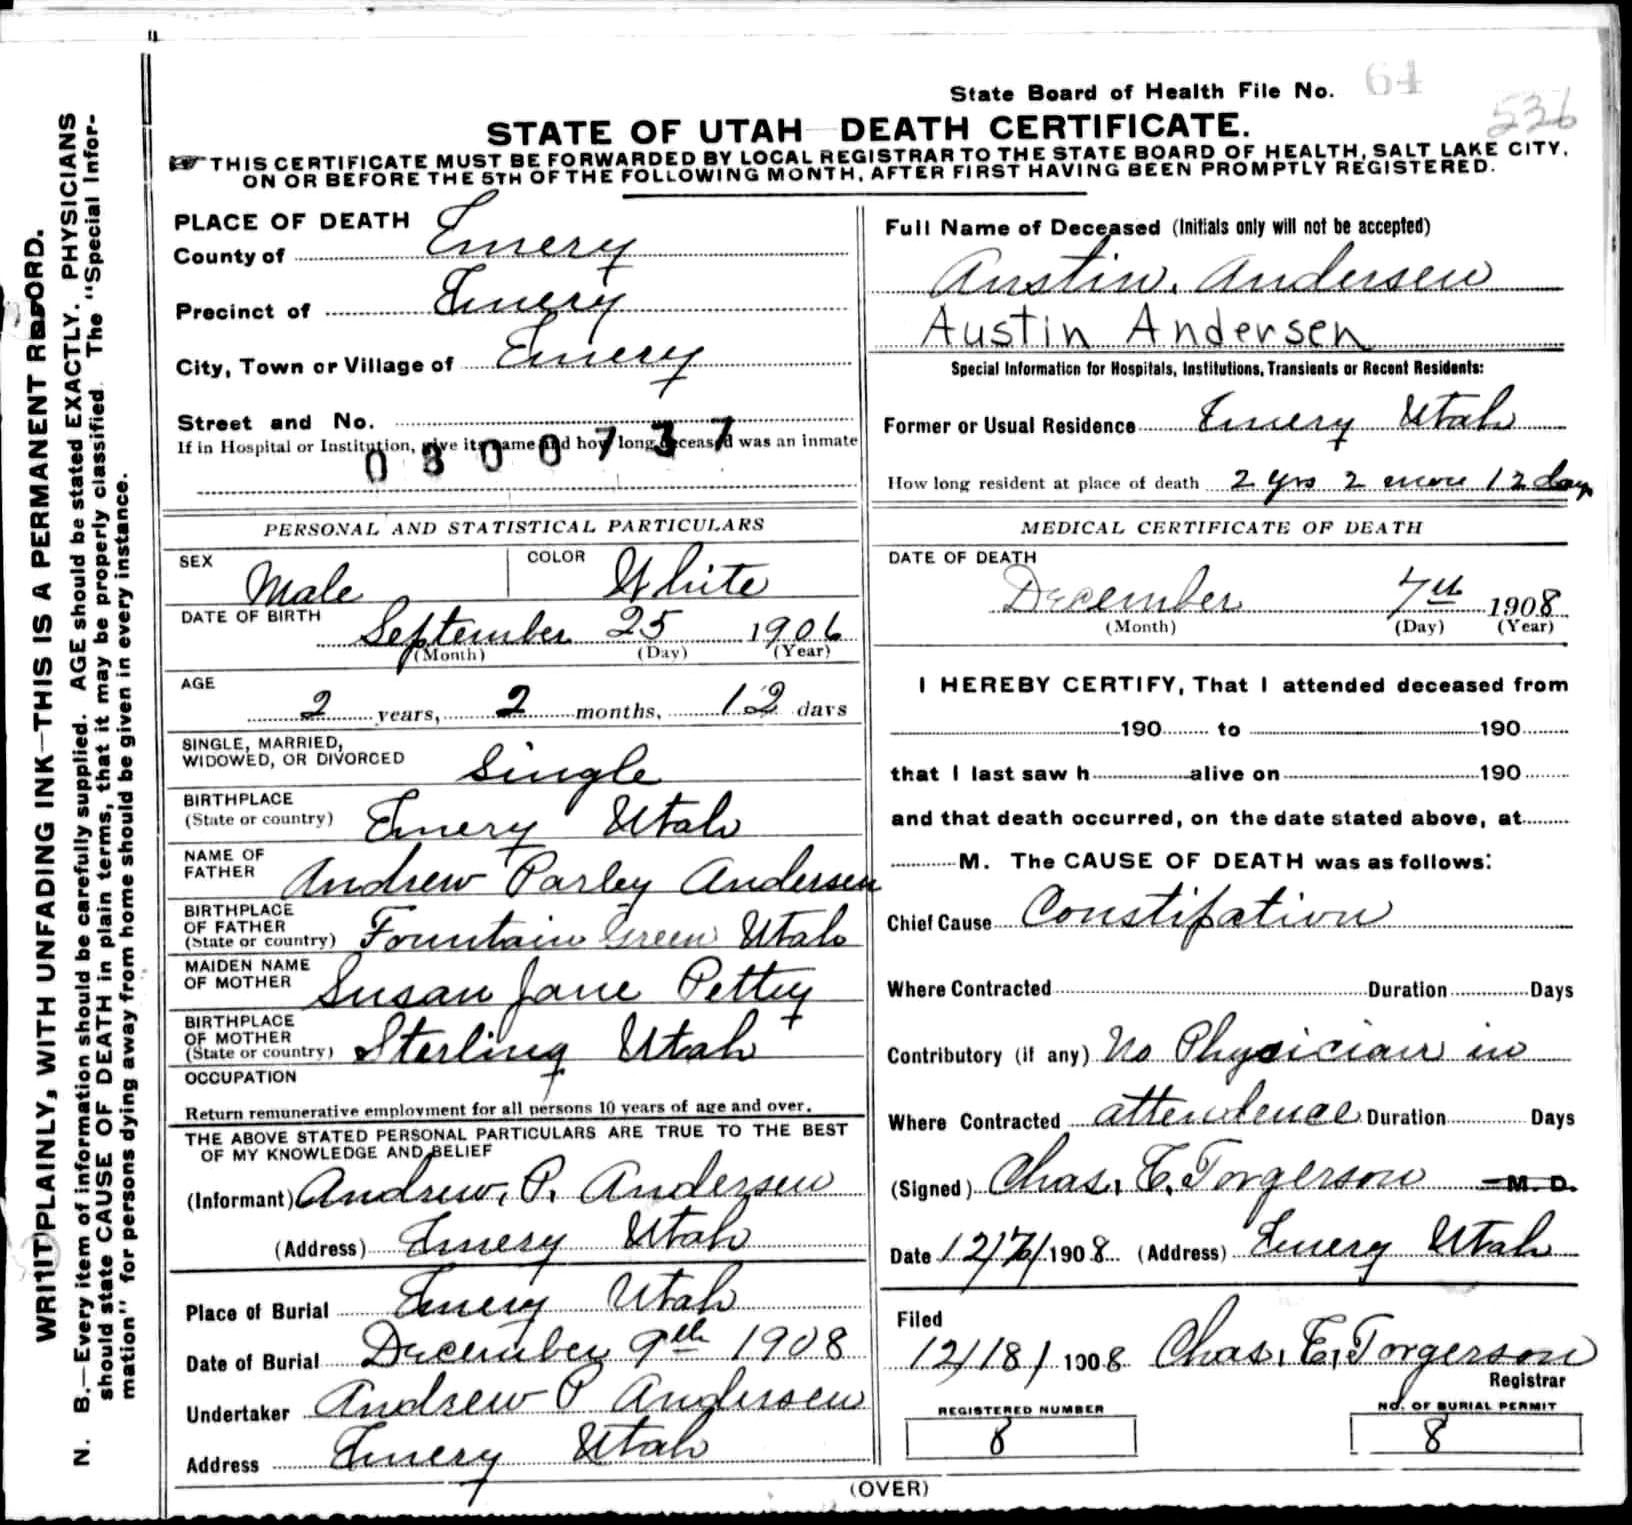 State Board of Health File No. 64
536
STATE OF UTAH DEATH CERTIFICATE.
THIS CERTIFICATE MUST BE FORWARDED BY LOCAL REGISTRAR TO THE STATE BOARD OF HEALTH, SALT LAKE CITY,
ON OR BEFORE THE 5TH OF THE FOLLOWING MONTH, AFTER FIRST HAVING BEEN PROMPTLY REGISTERED.
WRITE PLAINLY, WITH UNFADING INK—THIS IS A PERMANENT RECORD.
N. B.—Every item of information should be carefully supplied. AGE should be stated EXACTLY. PHYSICIANS
should state CAUSE OF DEATH in plain terms, that it may be properly classified. The "Special Infor-
mation" for persons dying away from home should be given in every instance.
PLACE OF DEATH
County of Emery
Precinct of Emery
City, Town or Village of Emery
Street and No.
If in Hospital or Institution, give its name and how long deceased was an inmate
0300737
PERSONAL AND STATISTICAL PARTICULARS
SEX Male COLOR White
DATE OF BIRTH
September 25 1906
(Month) (Day) (Year)
AGE
2 years, 2 months, 12 days
SINGLE, MARRIED,
WIDOWED, OR DIVORCED Single
BIRTHPLACE
(State or country) Emery Utah
NAME OF
FATHER Andrew Parley Andersen
BIRTHPLACE
OF FATHER
(State or country) Fountain Green Utah
MAIDEN NAME
OF MOTHER Susan Jane Pettey
BIRTHPLACE
OF MOTHER
(State or country) Sterling Utah
OCCUPATION
Return remunerative employment for all persons 10 years of age and over.
THE ABOVE STATED PERSONAL PARTICULARS ARE TRUE TO THE BEST
OF MY KNOWLEDGE AND BELIEF
(Informant) Andrew. P. Andersen
(Address) Emery Utah
Place of Burial Emery Utah
Date of Burial December 9th 1908
Undertaker Andrew P Andersen
Address Emery Utah
Full Name of Deceased (Initials only will not be accepted)
Austin. Andersen
Austin Andersen
Special Information for Hospitals, Institutions, Transients or Recent Residents:
Former or Usual Residence Emery Utah
How long resident at place of death 2 yrs 2 mon 12 days
MEDICAL CERTIFICATE OF DEATH
DATE OF DEATH
December 7th 1908
(Month) (Day) (Year)
I HEREBY CERTIFY, That I attended deceased from
190 to 190
that I last saw h alive on 190
and that death occurred, on the date stated above, at
M. The CAUSE OF DEATH was as follows:
Chief Cause Constipation
Where Contracted Duration Days
Contributory (if any) No Physician in
Where Contracted attendence Duration Days
(Signed) Chas. E. Torgerson M. D.
Date 12/7/1908 (Address) Emery Utah
Filed
12/18/1908 Chas. E. Torgerson
Registrar
REGISTERED NUMBER
8
NO. OF BURIAL PERMIT
8
(OVER)